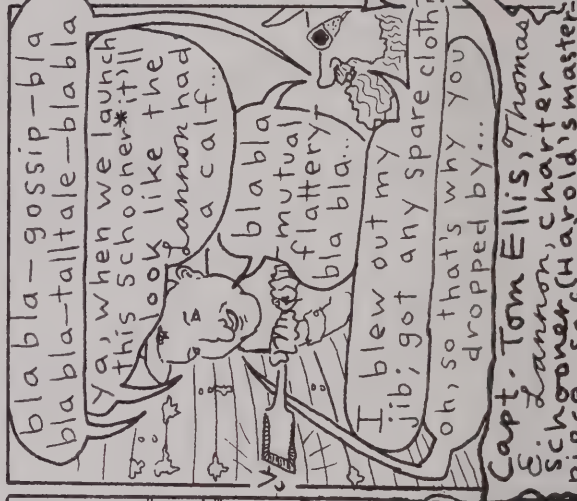 bla bla—gossip—bla
blabla—talltale—blabla
Ya, when we launch
this schooner* it'll
look like the
Lannon had
a calf...
bla bla
—mutual
flattery
bla bla...
I blew out my
jib; got any spare cloth
oh, so that's why you
dropped by...
Capt. Tom Ellis, Thomas
E. Lannon, charter
schooner (Harold's master=